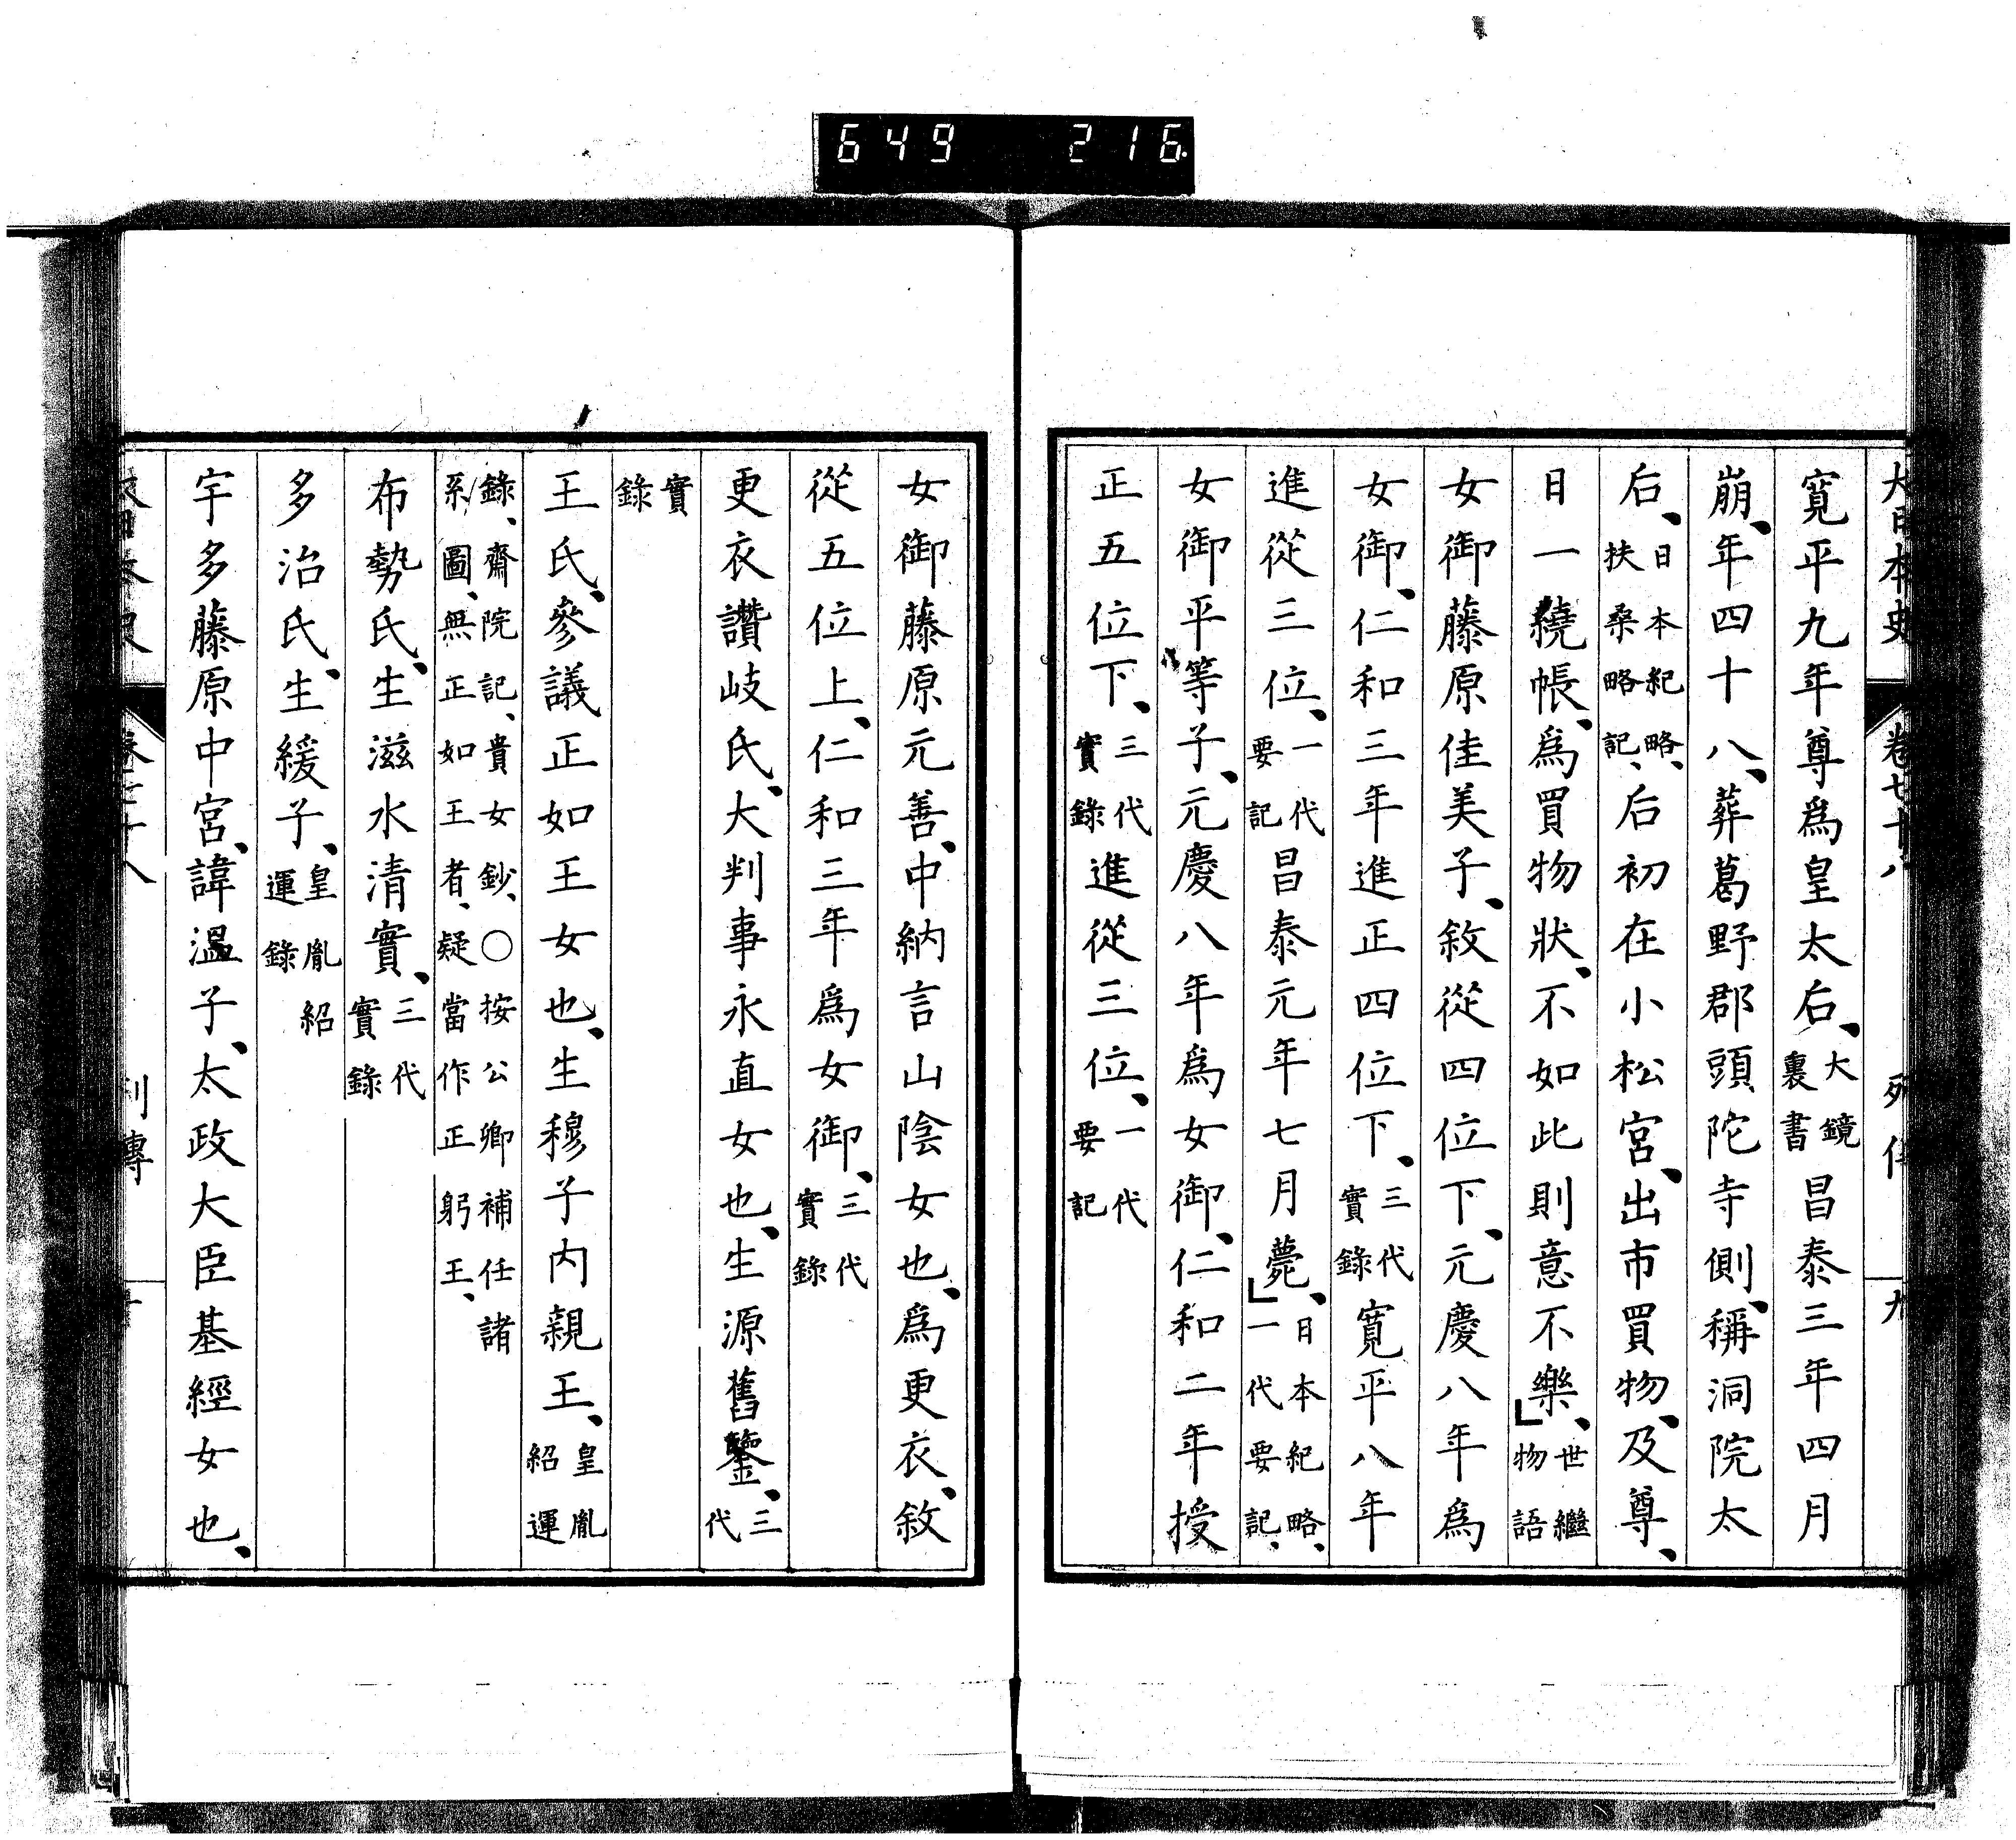 649 216
大日本史 卷七十八 列傳 九
寬平九年尊爲皇太后、大鏡裏書昌泰三年四月
崩、年四十八、葬葛野郡頭陀寺側、稱洞院太
后、日本紀略、扶桑略記、后初在小松宮、出市買物、及尊、
日一繞帳、爲買物狀、不如此則意不樂、世繼物語
女御藤原佳美子、敘從四位下、元慶八年爲
女御、仁和三年進正四位下、三代實錄寬平八年
進從三位、一代要記昌泰元年七月薨、日本紀略、一代要記、
女御平等子、元慶八年爲女御、仁和二年授
正五位下、三代實錄進從三位、一代要記
女御藤原元善、中納言山陰女也、爲更衣、敘
從五位上、仁和三年爲女御、三代實錄
更衣讚岐氏、大判事永直女也、生源舊鑒、三代
實錄
王氏、參議正如王女也、生穆子内親王、皇胤紹運
錄、齋院記、貴女鈔、○按公卿補任諸系圖、無正如王者、疑當作正躬王、
布勢氏、生滋水清實、三代實錄
多治氏、生緩子、皇胤紹運錄
宇多藤原中宮、諱溫子、太政大臣基經女也、